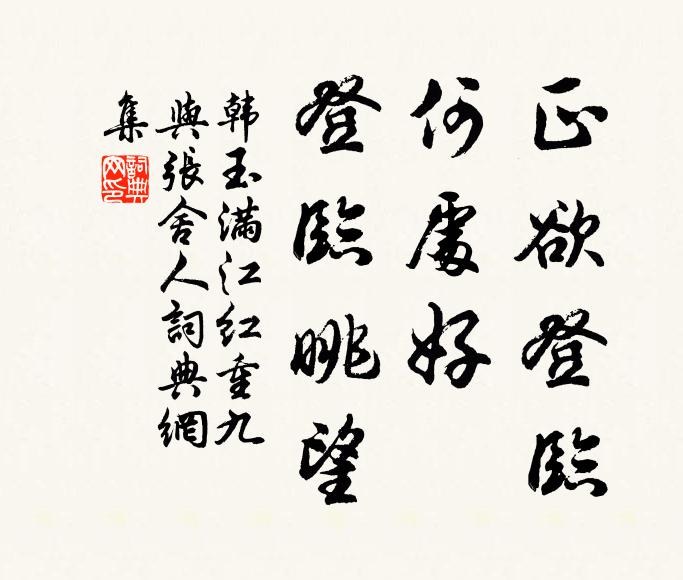 正欲登臨
何處好
登臨眺望
韩玉满江红重九
與張舍人詞典網
集
詞典網印